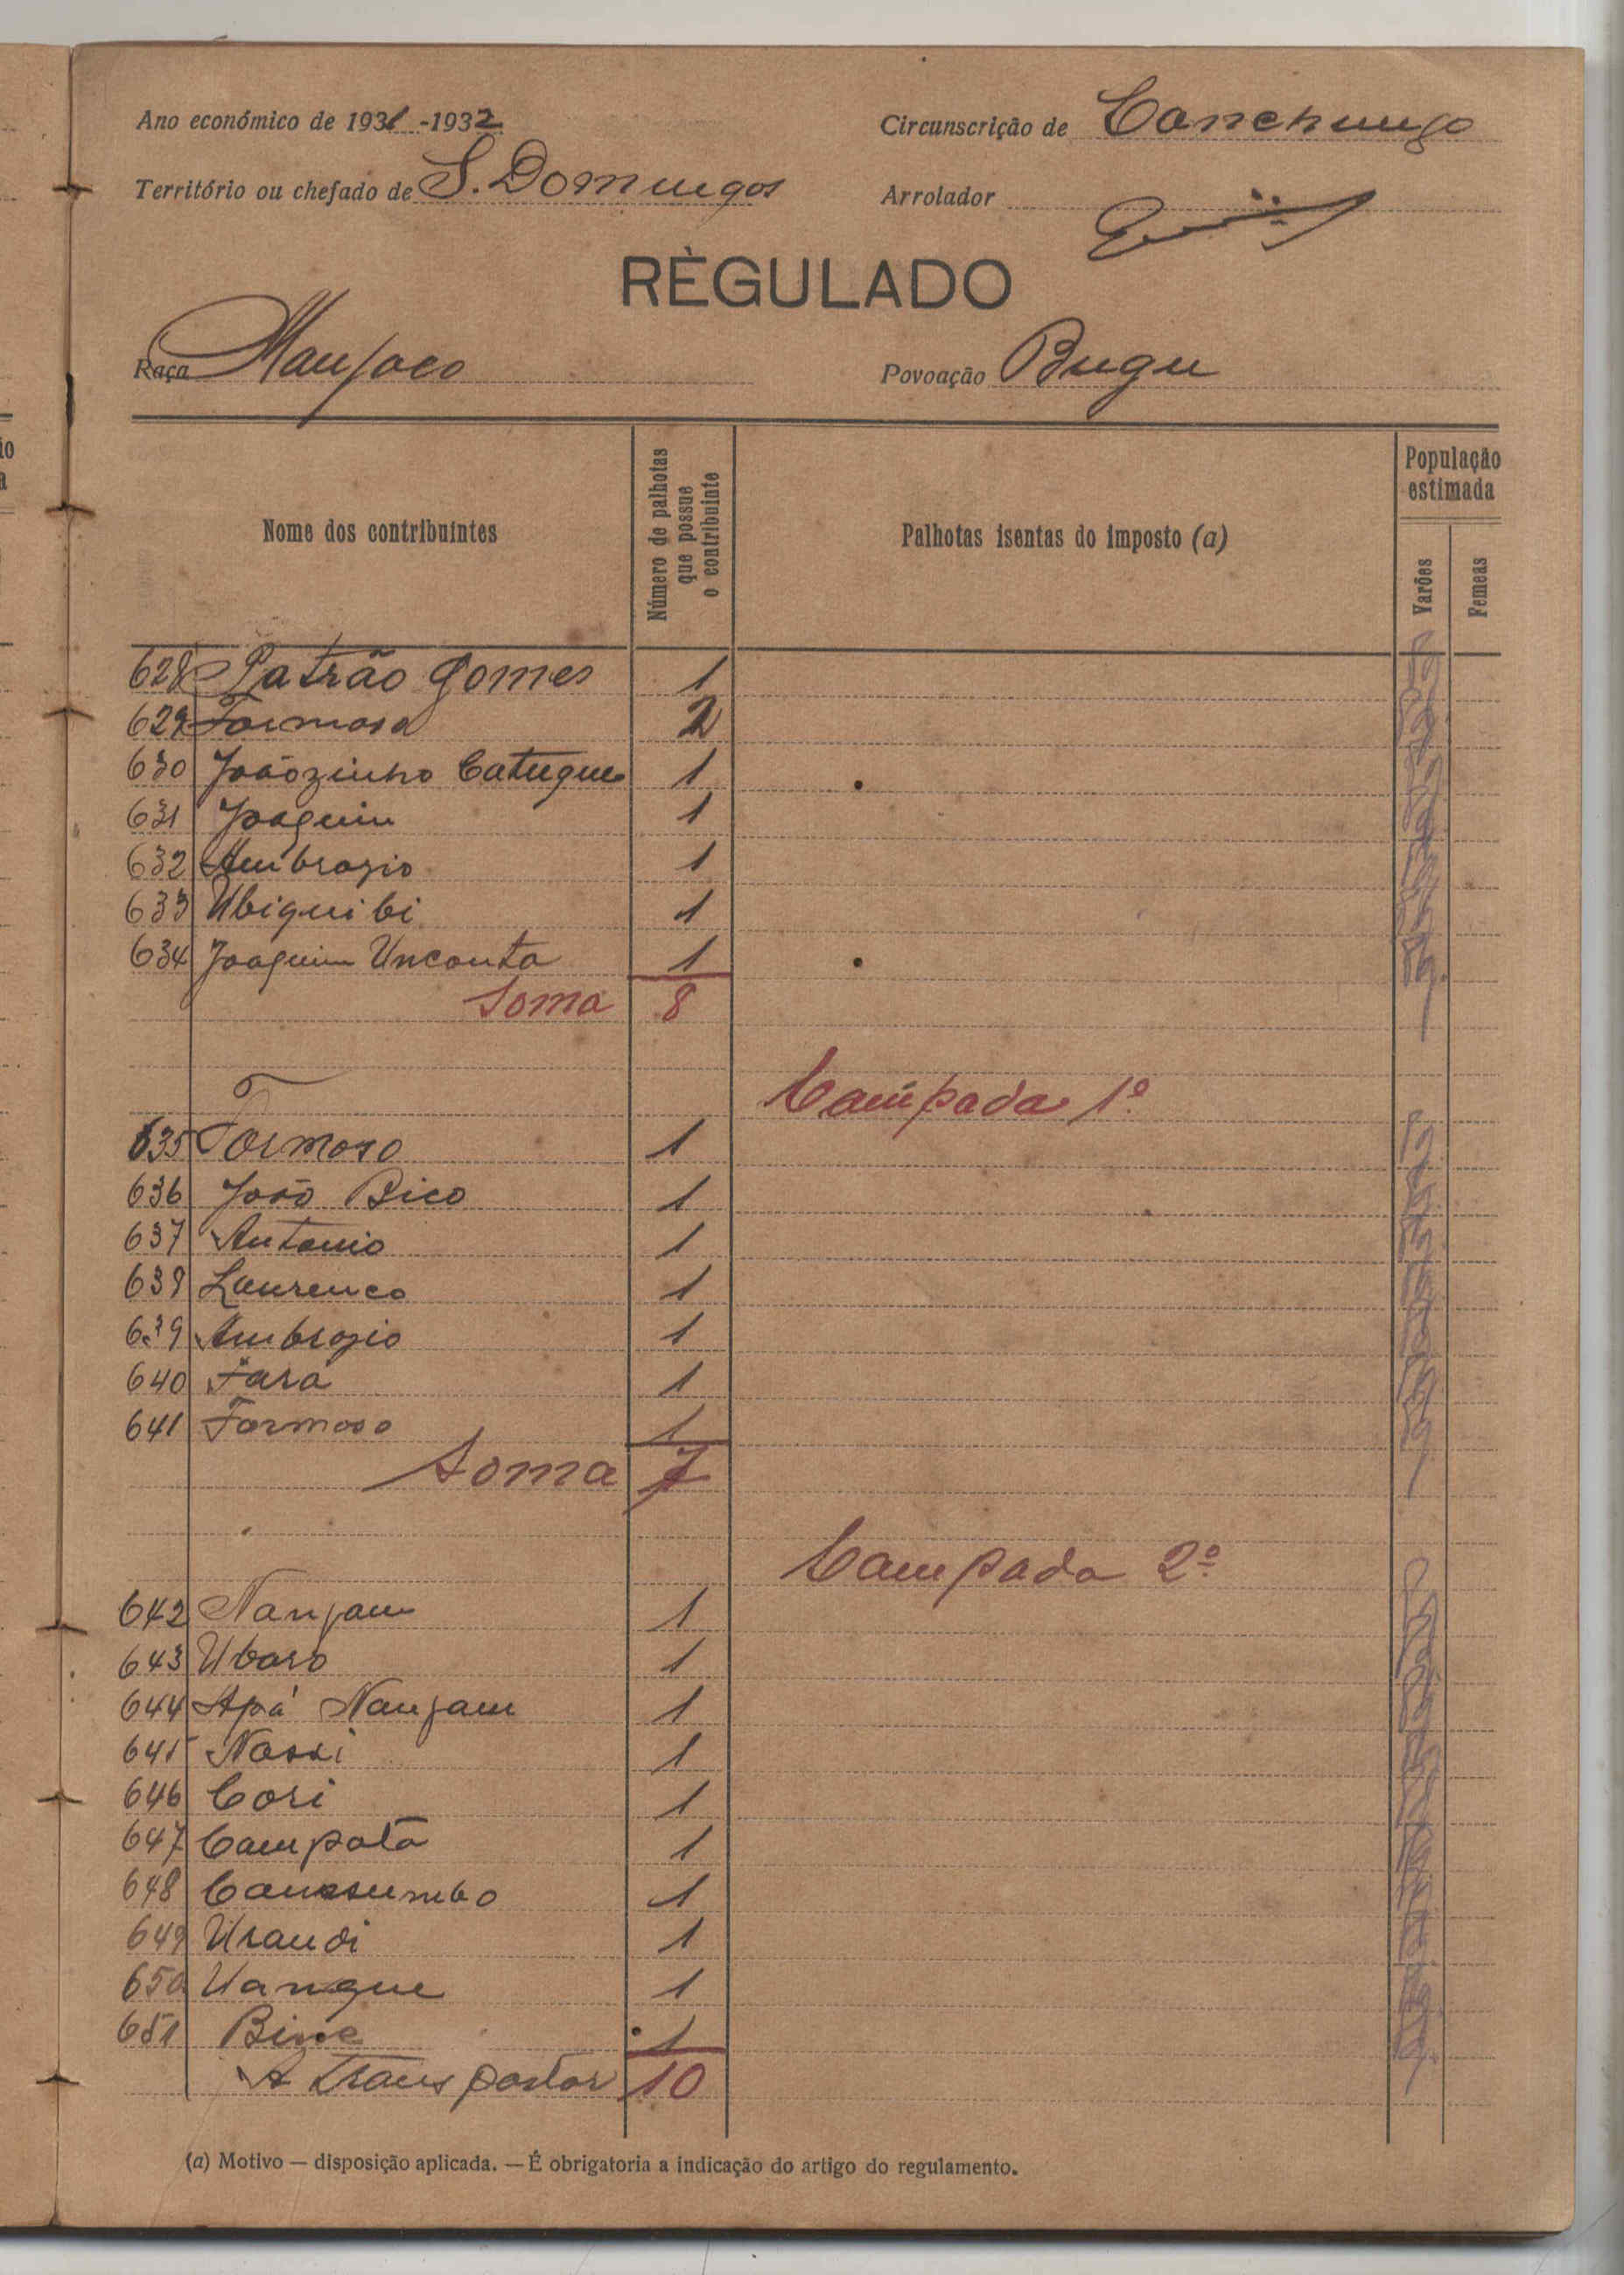 Ano económico de 1931-1932 Circunscrição de Canchungo
Território ou chefado de S. Domingos Arrolador
RÈGULADO
Raça Manjaco Povoação Bugu
Nome dos contribuintes Número de palhotas que possue o contribuinte Palhotas isentas do imposto (a) População estimada Varões Femeas
628 Patrão Gomes 1
629 Formosa 2
630 Joãozinho Catuque 1
631 Joaquim 1
632 Ambrozio 1
633 Ubiquibi 1
634 Joaquim Uncanta 1
Soma 8
Campada 1º
635 Formoso 1
636 João Bico 1
637 Antonio 1
638 Laurenco 1
639 Ambrozio 1
640 Fara 1
641 Formoso 1
Soma 7
Campada 2º
642 Nanjam 1
643 Ubaro 1
644 Apá Nanjam 1
645 Nassi 1
646 Cori 1
647 Campatà 1
648 Canssumbo 1
649 Urandi 1
650 Uanque 1
651 Bine 1
A transportar 10
(a) Motivo — disposição aplicada. — É obrigatoria a indicação do artigo do regulamento.